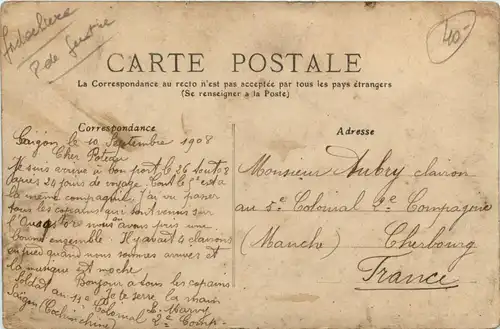 Indochine
P de Guerre
40-
CARTE POSTALE
La Correspondance au recto n'est pas acceptée par tous les pays étrangers
(Se renseigner a la Poste)
Correspondance
Saigon le 10 Septembre 1908
Cher Poteau
Je suis arrivé a bon port le 26 août 08
après 24 jours de voyage tout le est a
la même compagnie. J'ai vu passer
tous les copains qui sont venus sur
l' nous avons pris une
bonne ensemble. Il y avait 4 clairons
au quai quand nous sommes arrivés et
la musique est moche
Bonjour a tous les copains
Je te serre la main
Soldat au 11e Colonial
2e Comp.
Saigon (Cochinchine)
Adresse
Monsieur Aubry clairon
au 5e Colonial 2e Compagnie
(Manche) Cherbourg
France